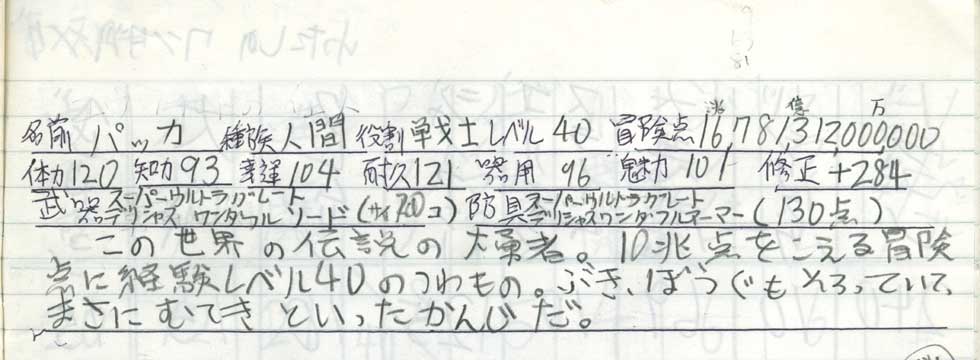 兆 億 万
名前 パッカ 種族 人間 役割 戦士 レベル 40 冒険点 16,781,312,000,000
体力120 知力93 幸運104 耐久121 器用 96 魅力 101 修正 +284
武器 スーパーウルトラグレートデリシャスワンダフルソード(サイ200コ) 防具 スーパーウルトラグレートデリシャスワンダフルアーマー(130点)
この世界の伝説の大勇者。10兆点をこえる冒険
点に経験レベル40のつわもの。ぶき、ぼうぐもそろっていて、
まさにむてきといったかんじだ。